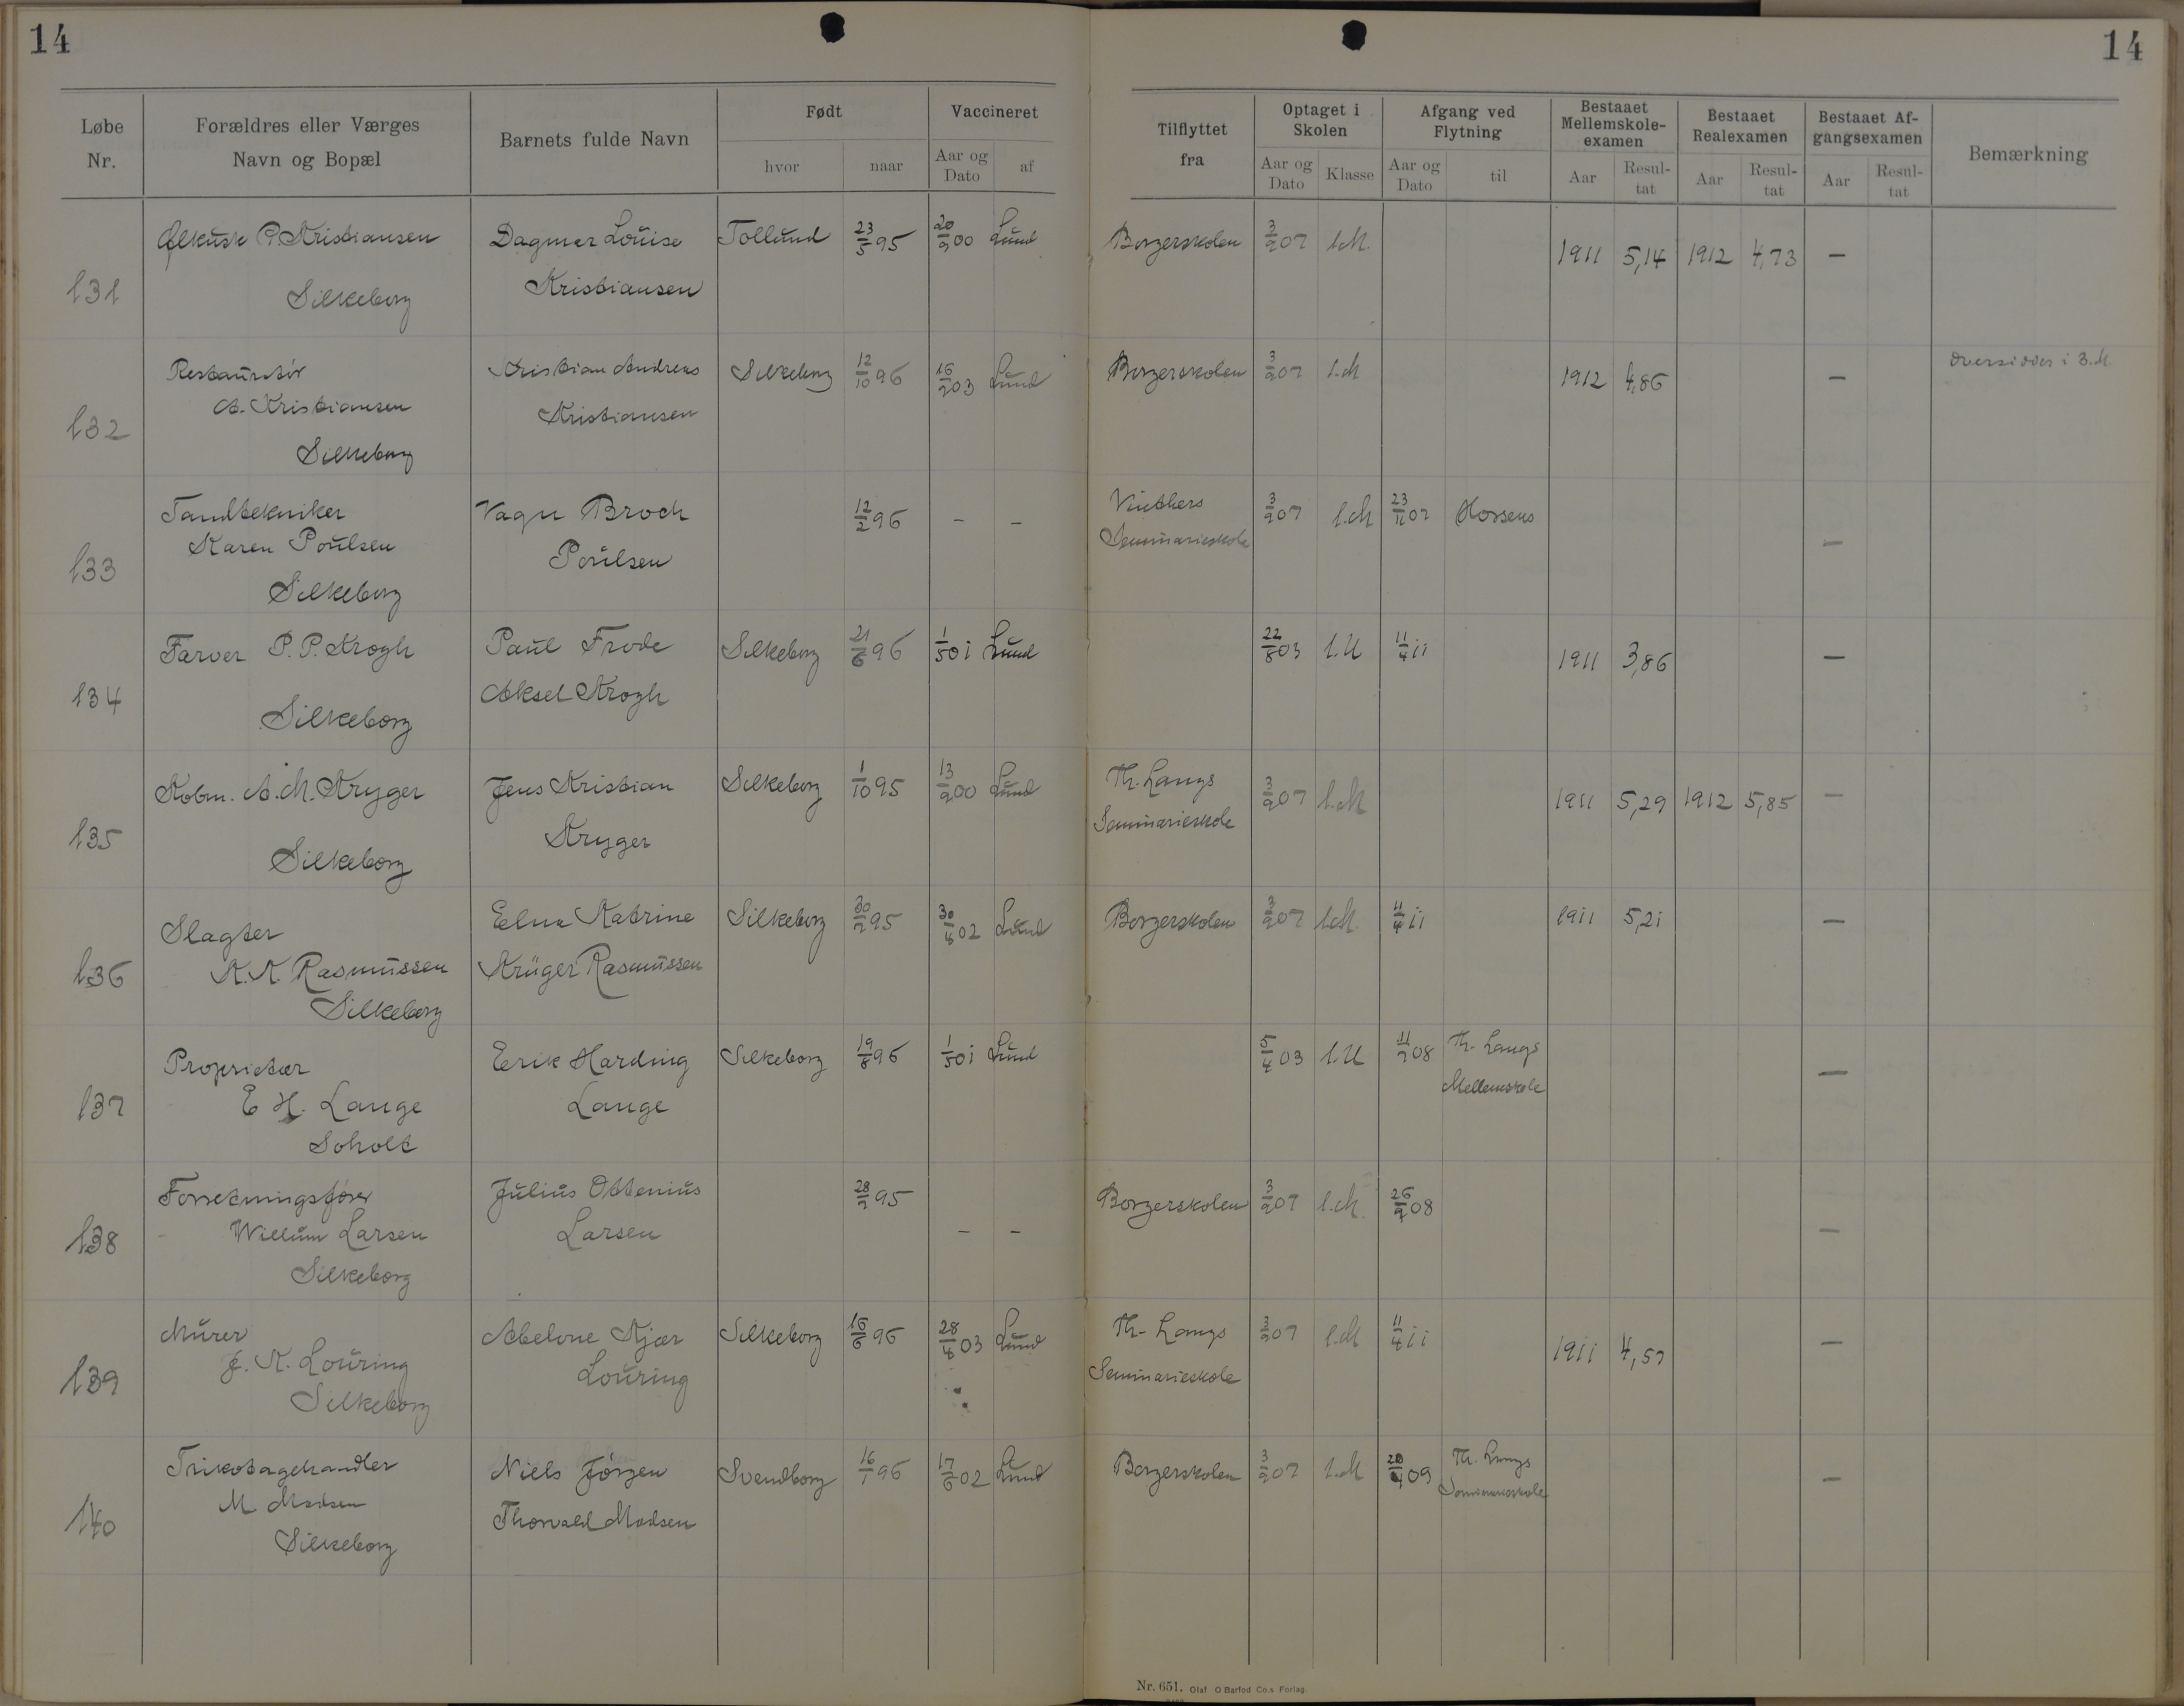 14
14
Løbe Nr.
Forældres eller Værges Navn og Bopæl
Barnets fulde Navn
Født
hvor
naar
Vaccineret
Aar og Dato
af
Tilflyttet fra
Optaget i Skolen
Aar og Dato
Klasse
Afgang ved Flytning
Aar og Dato
til
Bestaaet Mellemskole-examen
Aar
Resul-tat
Bestaaet Realexamen
Aar
Resul-tat
Bestaaet Af-gangsexamen
Aar
Resul-tat
Bemærkning
131 Ølkusk P. Kristiansen Silkeborg Dagmar Louise Kristiansen Tollund 23/5 95 20/9 00 Lund Borgerskolen 3/9 07 1.M. 1911 5,14 1912 4,73 —
132 Restauratør A. Kristiansen Silkeborg Kristian Andreas Kristiansen Silkeborg 12/10 96 16/2 03 Lund Borgerskolen 3/9 07 1.M 1912 4,86 — Oversidder i 3.M
133 Tandtekniker Karen Poulsen Silkeborg Vagn Broch Poulsen 12/2 96 – – Vinthers Seminarieskole 3/9 07 1.M 23/11 07 Horsens —
134 Farver P. P. Krogh Silkeborg Paul Frode Aksel Krogh Silkeborg 21/6 96 1/5 01 Lund 22/8 03 1.U 11/4 11 1911 3,86 —
135 Kobm. A. M. Kryger Silkeborg Jens Kristian Kryger Silkeborg 1/10 95 13/9 00 Lund Th. Langs Seminarieskole 3/9 07 1.M 1911 5,29 1912 5,85 —
136 Slagter K. K Rasmussen Silkeborg Elna Katrine Krüger Rasmussen Silkeborg 30/7 95 02 Lund Borgerskolen 3/9 07 1.M. 11/4 11 1911 5,21 —
137 Proprietær E H. Lange Soholt Erik Harding Lange Silkeborg 19/8 96 1/5 01 Lund 5/4 03 1.U 11/7 08 Th. Langs Mellemskole —
138 Forretningsfører Willum Larsen Silkeborg Julius Ottenius Larsen 28/7 95 – – Borgerskolen 3/9 07 1.M. 08 —
139 Murer J. K. Louring Silkeborg Abelone Kjær Louring Silkeborg 16/6 96 03 Lund Th. Langs Seminarieskole 3/9 07 1.M 11/4 11 1911 4,57 —
140 Trikotagehandler M Madsen Silkeborg Niels Jørgen Thorvald Madsen Svendborg 16/1 96 17/6 02 Lund Borgerskolen 3/9 07 1.M 09 Th. Langs Seminarieskole —
Nr. 651. Olaf O Barfod Co.s Forlag.